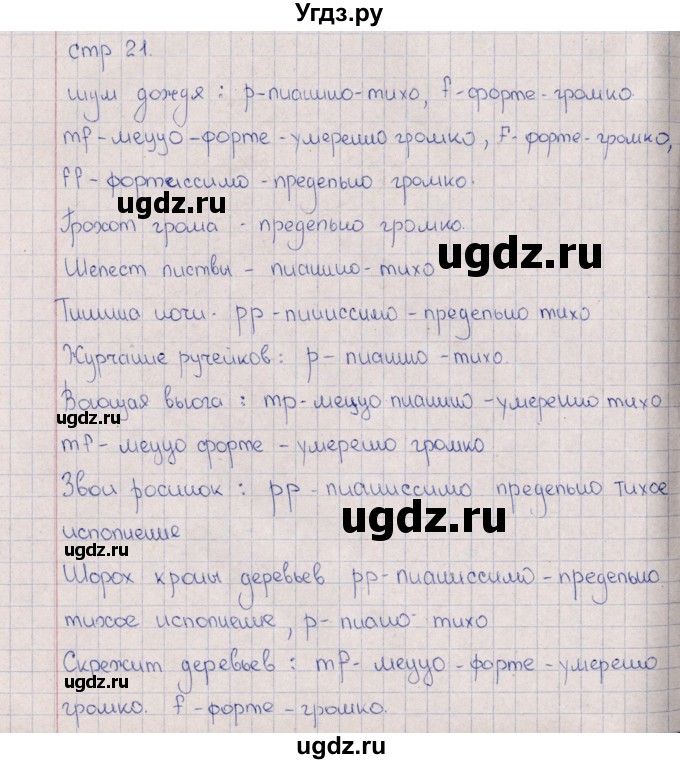 Угдз.ру
стр 21.
шум дождя: р-пианно-тихо, f-форте-громко
mf-меццо-форте-умеренно громко, F-форте-громко,
ff-фортиссимо-предельно громко.
ugdz.ru
Грохот грома - предельно громко.
ugdz.ru
Шелест листвы - пианно-тихо
Тишина ночи. pp-пианиссимо-предельно тихо
Журчание ручейков: р-пианно-тихо.
Воющая вьюга: mp-меццо пианно-умеренно тихо
ugdz.ru
mf-меццо форте-умеренно громко
Звон росинок: pp-пианиссимо предельно тихое
ugdz.ru
исполнение
ugdz.ru
Шорох кроны деревьев pp-пианиссимо-предельно
тихое исполнение, р-пиано-тихо
Скрежит деревьев: mf-меццо-форте-умеренно
ugdz.ru
громко. f-форте-громко.
ugdz.ru